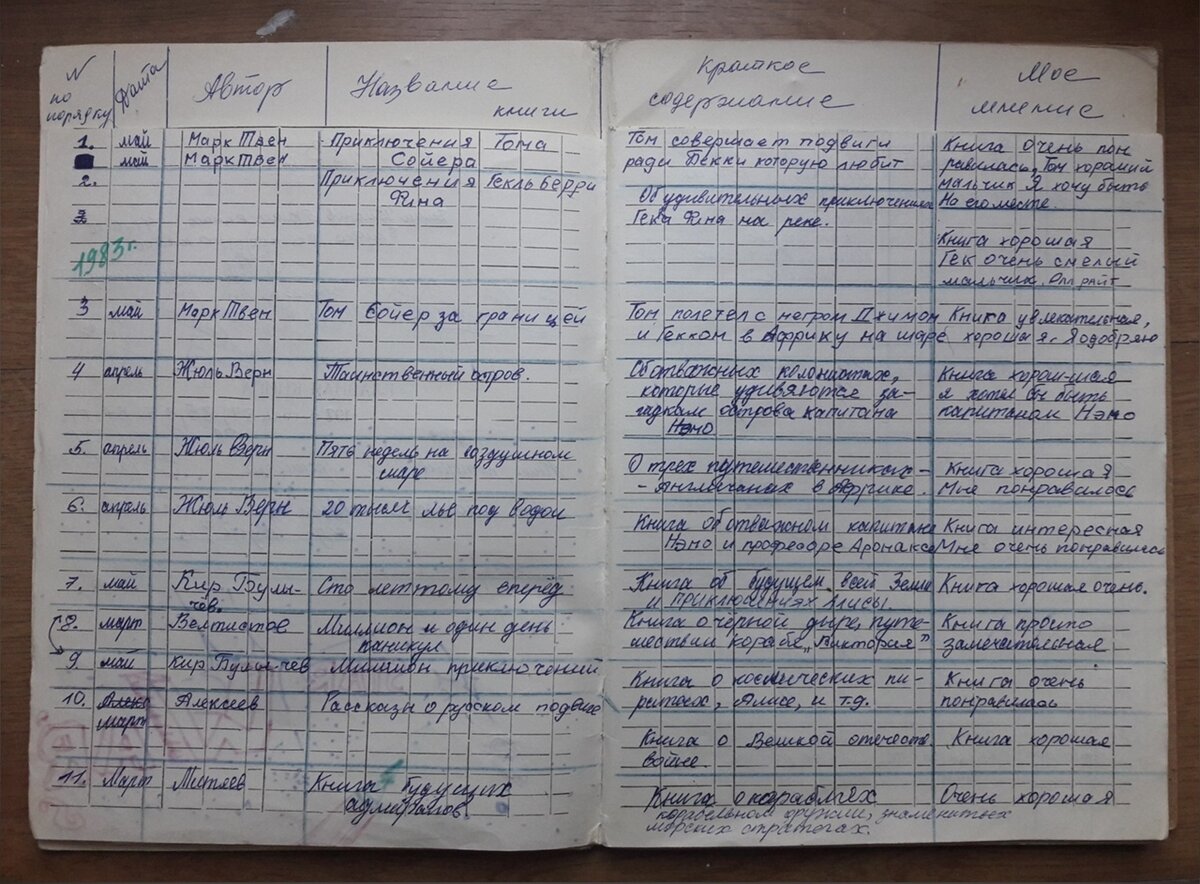 N по порядку Дата Автор Название книги Краткое содержание Мое мнение
1. май Марк Твен Приключения Тома Том совершает подвиги Книга очень пон
май Марк Твен Сойера ради Бекки которую любит равилась, Том хороший
2. Приключения Гекль Берри мальчик Я хочу быть
Фина Об удивительных приключениях На его месте.
3 Гека Фина на реке.
1983г. Книга хорошая
Гек очень смелый
мальчик. Олл райт
3 май Марк Твен Том Сойер за границей Том полетел с негром Джимом Книга увлекательная,
и Гекком в Африку на шаре хорошая. Я одобряю
4 апрель Жюль Верн Таинственный остров. Об отважных колонистах, Книга хорошшая
которые удивяются за- я хотел бы быть
гадкам острова капитана капитаном Нэмо
Нэмо
5. апрель Жюль Верн Пять недель на воздушном
шаре О трех путешественниках - Книга хорошая
- Англичанах в Африке. Мне понравилось
6. апрель Жюль Верн 20 тысяч лье под водой
Книга об отважном капитане Книга интересная
Нэмо и професоре Аронаксе Мне очень понравилась
7. май Кир Булы- Сто лет тому вперёд Книга об будущем всей Земли Книга хорошая очень.
чев. и приключениях Алисы.
8. март Велтистов Миллион и один день Книга о черной дыре, путе- Книга просто
каникул шествии корабе „Виктория" замечательная
9 май Кир Булычев Миллион приключений
Книга о космических пи- Книга очень
10. март Алексеев Рассказы о русском подвиге ратах, Алисе, и т.д. понравилась
Книга о Великой отечеств. Книга хорошая
войне.
11. Март Митяев Книга будущих
адмиралов. Книга о караблях Очень хорошая
корабельном оружии, знаменитых
морских стратегах.